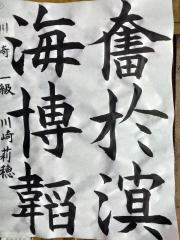 奮於溟
海博韜
川崎 一級 川崎莉穂